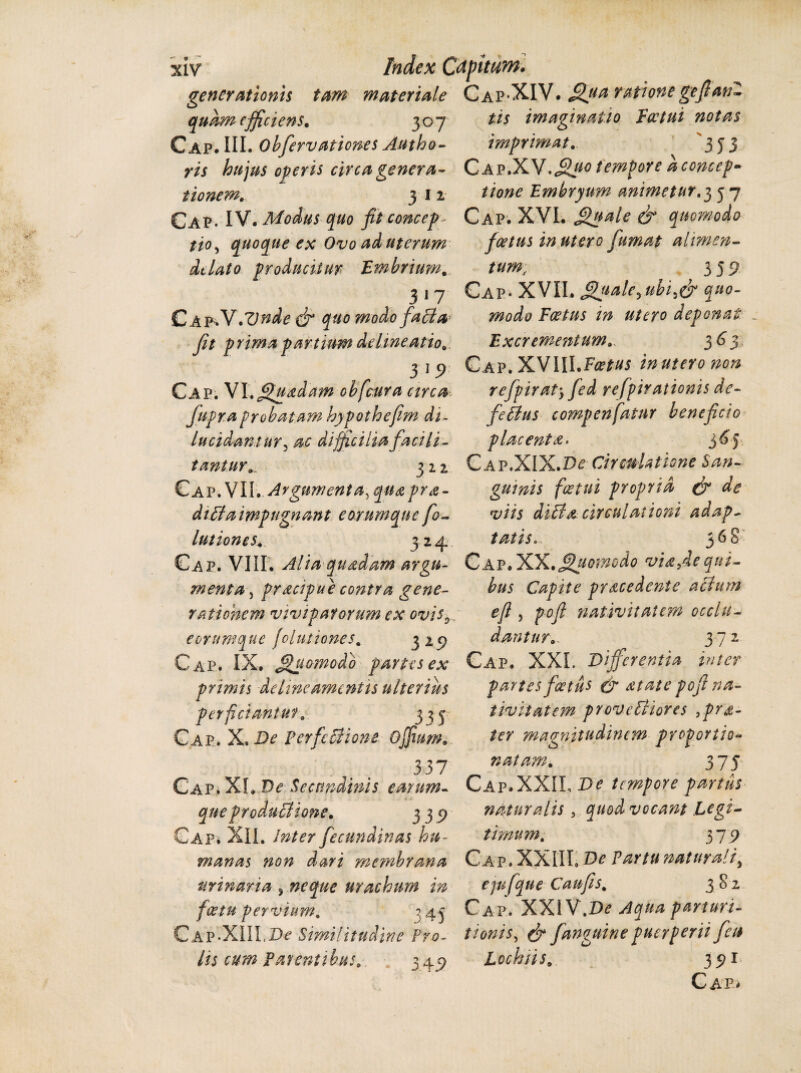 xiv Index Capitum.
generationis tam materiale
quàm efficiens. 307
CAP. III. Obſervationes Autho-
ris hujus operis circa genera-
tionem. 312
CAP. IV. Modus quo fit concep-
tio, quoque ex Ovo ad uterum
delato producitur Embrium.
317
CAP. V. Vnde & quo modo facta
fit prima partium delineatio.
319
CAP. VI. Quædam obſcura circa
ſupra probatam hypotheſim di-
lucidantur, ac difficilia facili-
tantur. 322
CAP. VII. Argumenta, quæ præ-
dicta impugnant eorumque ſo-
lutiones. 324
CAP. VIII. Alia quædam argu-
menta, præcipuè contra gene-
rationem viviparorum ex ovis,
eorumque ſolutiones. 329
CAP. IX. Quomodò partes ex
primis delineamentis ulterius
perficiantur. 335
CAP. X. De Perfectione Oſſium.
337
CAP. XI. De Secundinis earum-
que productione. 339
CAP. XII. Inter ſecundinas hu-
manas non dari membrana
urinaria, neque urachum in
fœtu pervium. 345
CAP. XIII. De Similitudine Pro-
lis cum Parentibus. 349
CAP. XIV. Qua ratione geſtan-
tis imaginatio Fœtui notas
imprimat. 353
CAP. XV. Quo tempore à concep-
tione Embryum animetur. 357
CAP. XVI. Quale & quomodo
fœtus in utero ſumat alimen-
tum. 359
CAP. XVII. Quale, ubi, & quo-
modo Fœtus in utero deponat
Excrementum. 363
CAP. XVIII. Fœtus in utero non
reſpirat; ſed reſpirationis de-
fectus compenſatur beneficio
placentæ. 365
CAP. XIX. De Circulatione San-
guinis fœtui propriâ & de
viis dictæ circulationi adap-
tatis. 368
CAP. XX. Quomodo viæ, de qui-
bus Capite præcedente actum
eſt, poſt nativitatem occlu-
dantur. 372
CAP. XXI. Differentia inter
partes fœtûs & ætate poſt na-
tivitatem provectiores, præ-
ter magnitudinem proportio-
natam. 375
CAP. XXII. De tempore partûs
naturalis, quod vocant Legi-
timum. 379
CAP. XXIII. De Partu naturali,
ejuſque Cauſis. 382
CAP. XXIV. De Aqua parturi-
tionis, & ſanguine puerperii ſeu
Lochiis. 391
CAP.